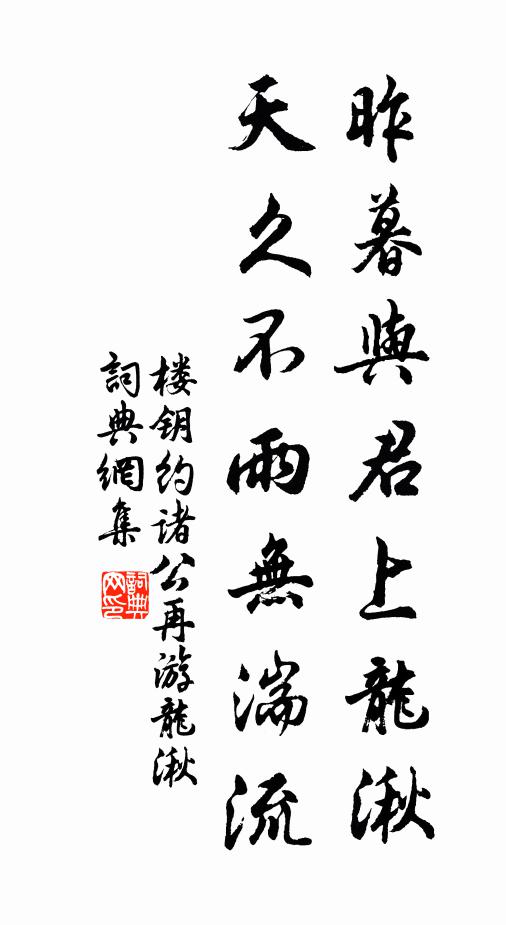 昨暮與君上龍湫
天久不雨無湍流
楼钥约诸公再游龍湫
詞典網集
詞典网印